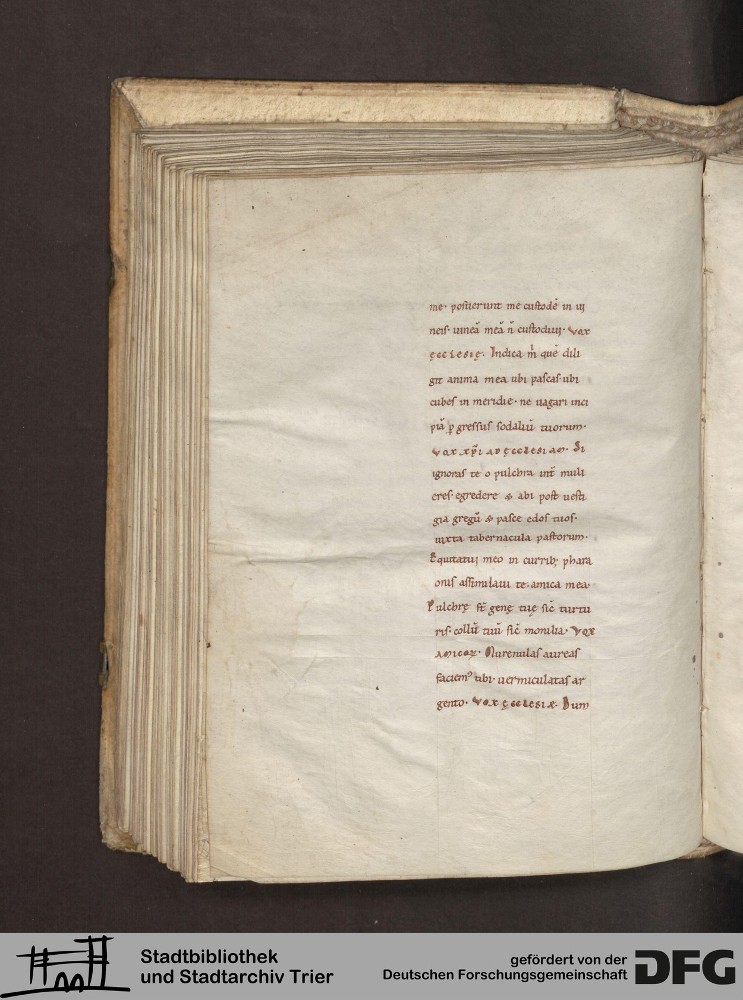 me· posuerunt me custodē in ui
neis· uineā meā n̄ custodiui· vox
ęcclesię· Indica m̄ quē dili
git anima mea ubi pascas· ubi
cubes in meridie· ne uagari inci
piā ꝑ gressus sodaliū tuorum·
vox xp̄i ad ęcclesiam· Si
ignoras te o pulchra int̄ muli
eres· egredere & abi post uesti
gia gregū & pasce edos tuos·
iuxta tabernacula pastorum·
Equitatui meo in currib; phara
onis assimilaui te· amica mea·
Pulchrę st̄ genę tuę sic̄ turtu
ris· collū tuū sic̄ monilia· vox
amicoꝝ· Murenulas aureas
faciemꝰ tibi· uermiculatas ar
gento· vox ęcclesiæ· Dum
Stadtbibliothek
und Stadtarchiv Trier
gefördert von der
Deutschen Forschungsgemeinschaft
DFG